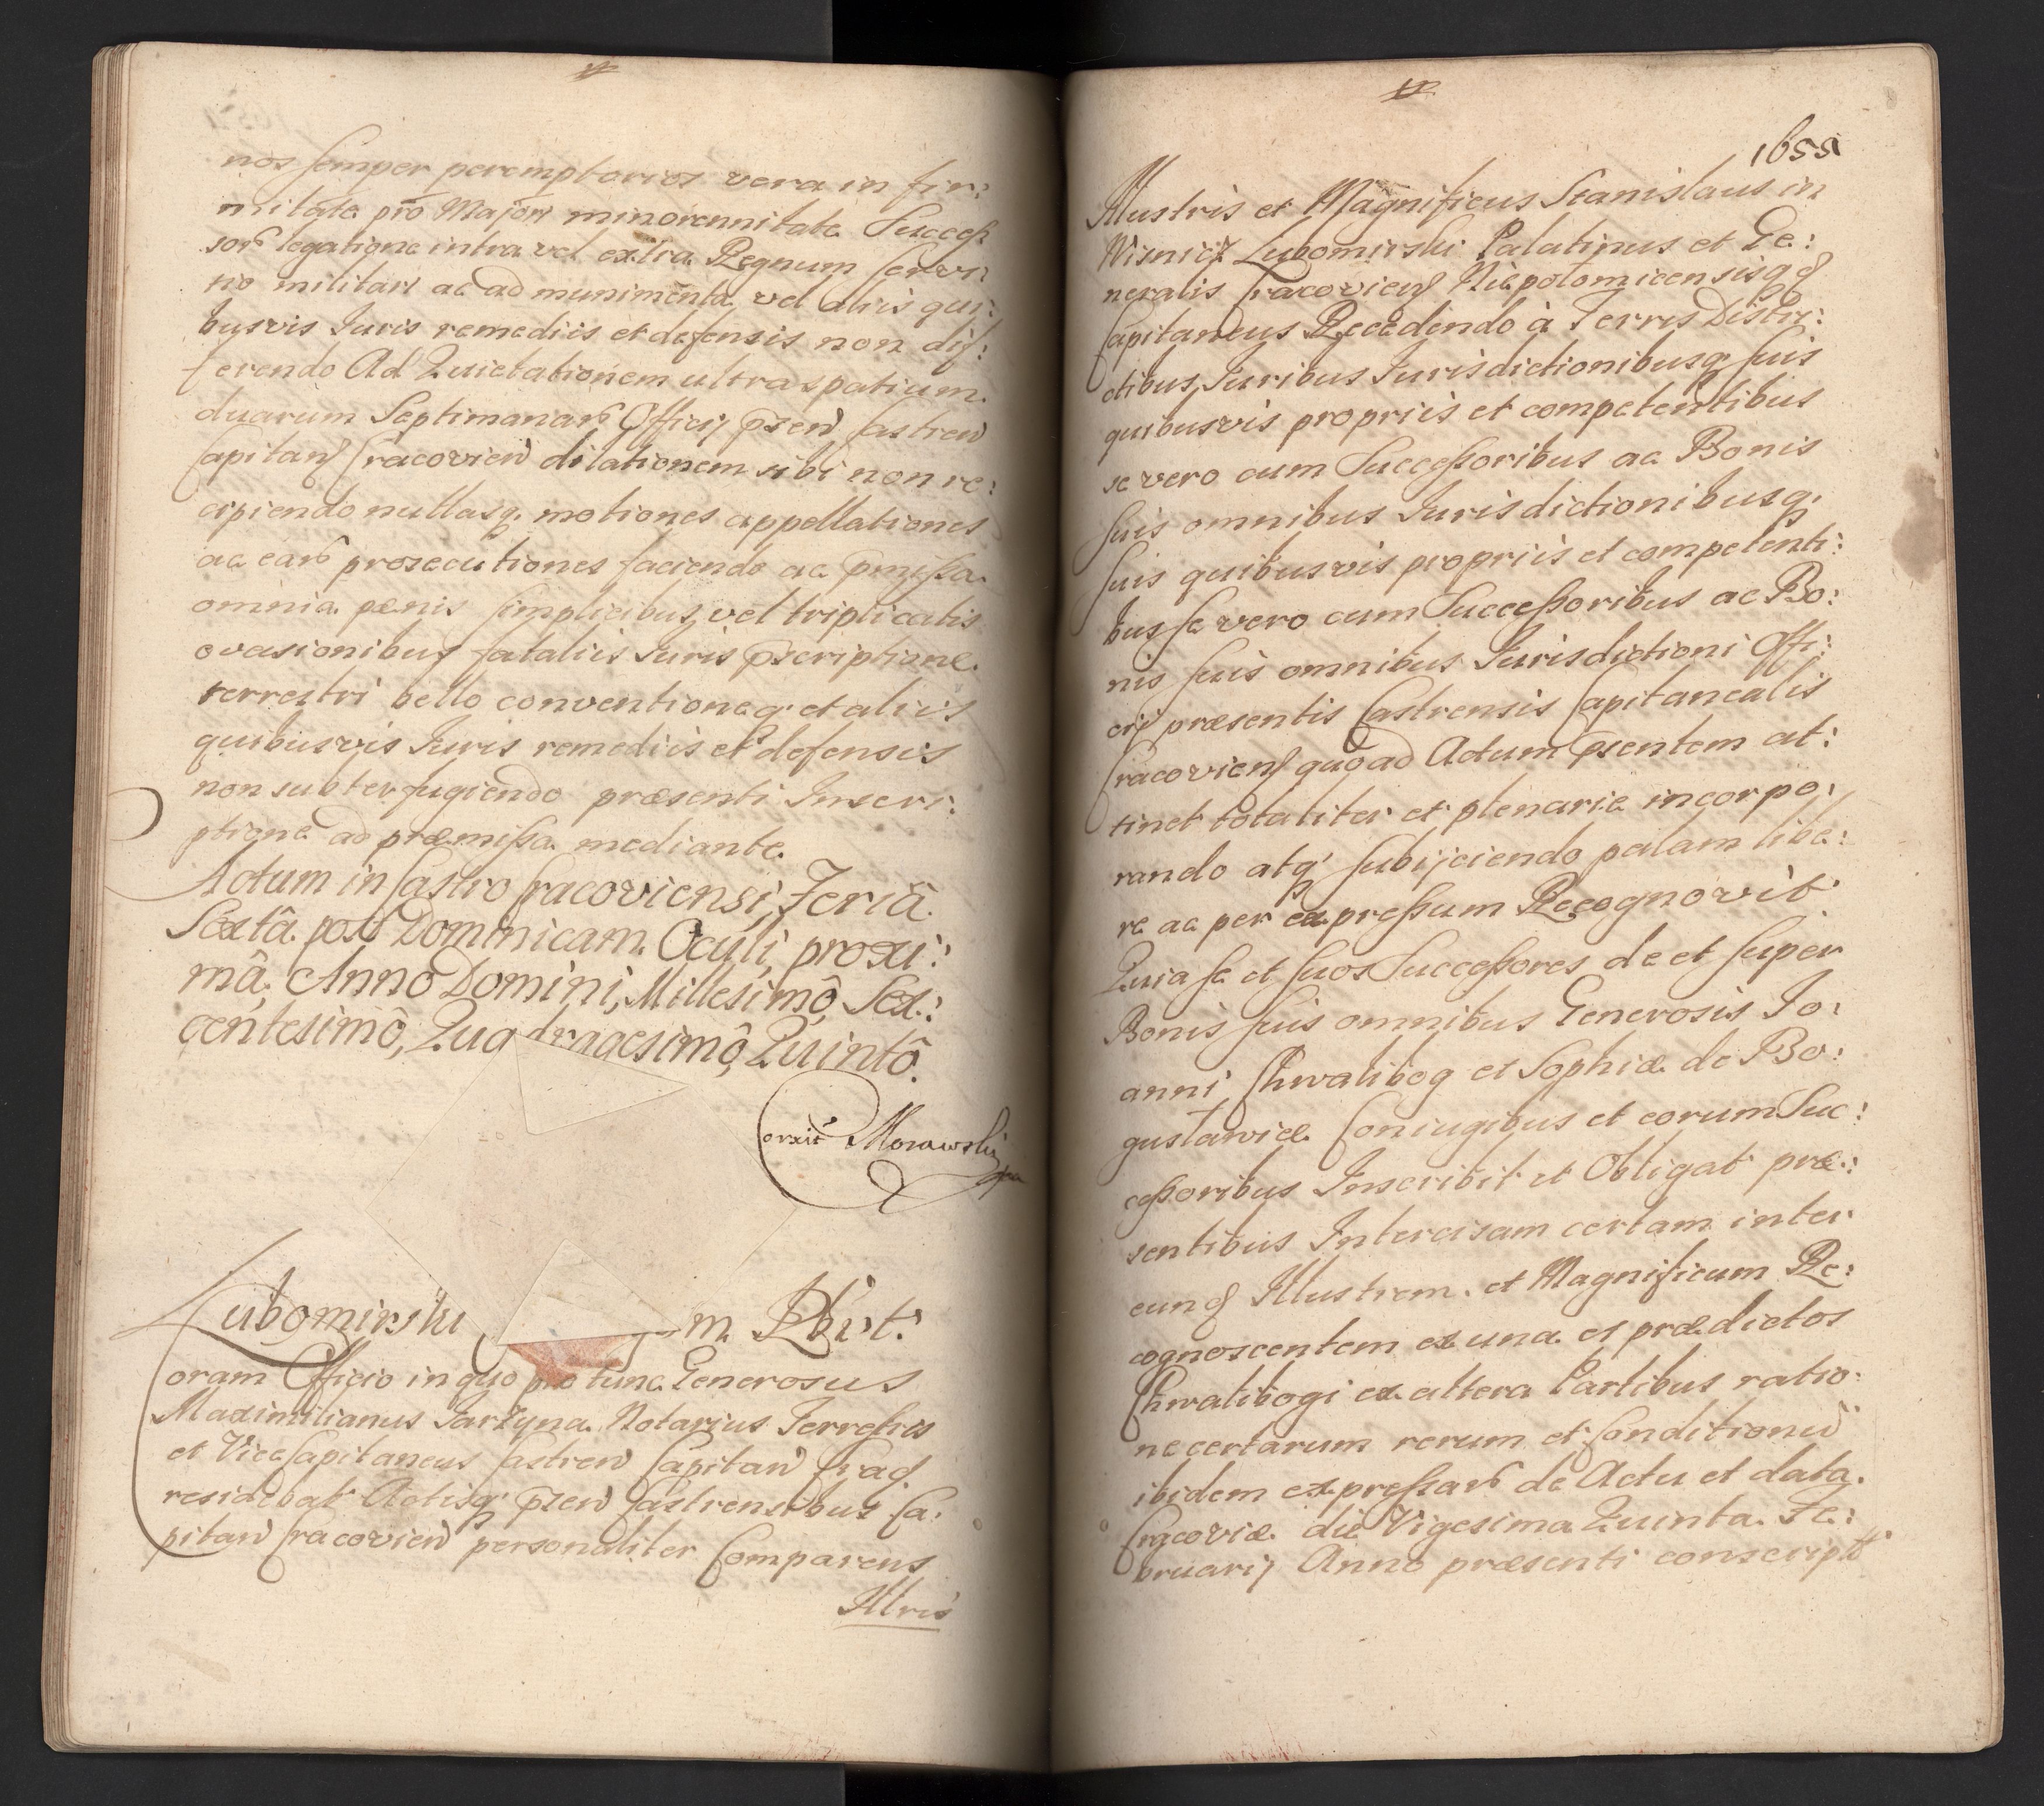 nos semper peremptorios vera in fir:
mitate pro Majori minorennitate Success
sorũ legatione intra vel extra Regnum servi:
tio militari ac ad munimenta vel aliis qui:
busvis Iuris remediis et defensis non dif:
ferendo Ad Quietationem ultra spatium
duarum Septimanarũ Officij pñen Castren
Capitan Cracovien dilationem sibi non re:
cipiendo nullasq; motiones appellationes
ac earũ prosecutiones faciendo ac pmissa
omnia pœnis simplicibus vel triplicatis
evasionibus fataliis Iuris pscriptione
terrestri bello conventioneq; et aliis
quibusvis Iuris remediis et defensis
non subterfugiendo præsenti Inscri:
ptione ad præmissa mediante.
Actum in Castro Cracoviensi, Feriâ
Sextâ post Dominicam Oculi, proxi:
mâ, Anno Domini, Millesimô, Sex:
centesimô, Quadragesimô, Quintô.
Corxit Morawski
Lubomirski m Rbit.
Coram Officio in quo pro tunc Generosus
Maximilianus Jarzyna Notarius Terrestris
et Vicecapitaneus Castren Capitan Crac
residebat Actisq; pñen Castrensibus Ca:
pitan Cracovien personaliter Comparens
Illris
1655
Illustris et Magnificus Stanislaus in
Wisnicz Lubomirski Palatinus et Ge:
neralis Cracovien Niepolomicensisqq
Capitaneus Recedendo à Terris Distri:
ctibus, Iuribus Iurisdictionibusq; suis
quibusvis propriis et competentibus
se vero cum Successoribus ac Bonis
suis omnibus Iurisdictionibusq;
suis quibusvis propriis et competenti:
bus se vero cum Successoribus ac Bo:
nis suis omnibus Iurisdictioni Offi:
cij præsentis Castrensis Capitanealis
Cracovien quo ad Actum psentem at:
tinet totaliter et plenarie incorpo:
rando atq; subijciendo palam libe:
re ac per expressum Recognovit
Quia se et suos Successores de et super
Bonis suis omnibus Generosis Jo:
anni Chwalibog et Sophiæ de Bo:
gusławice Coniugibus et eorum Suc:
cessoribus Inscribit et Obligat præ:
sentibus Intercisam certam inter
eunq Illustrem et Magnificum Re:
cognoscentem ex una et prædictos
Chwalibogi ex altera Partibus ratio:
ne certarum rerum et Conditionũ
ibidem expressarũ de Actu et data
Cracoviæ die Vigesima Quinta Fe:
bruarij Anno præsenti conscript